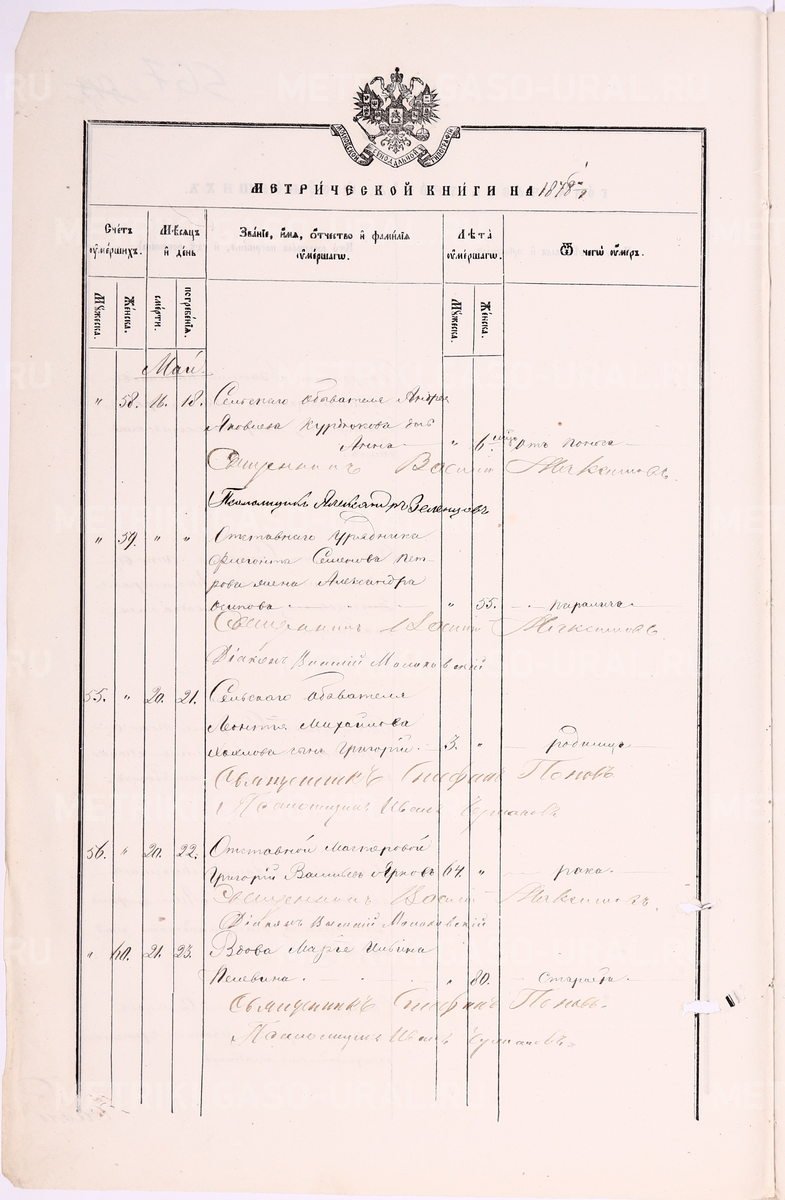 МОСКОВСКОЙ СѴНОДАЛЬНОЙ ТИПОГРАФІИ
МЕТРИ́ЧЕСКОЙ КНИ́ГИ НА 1878
Сче́тъ ѹме́ршихъ.
Мѣ́сяцъ и де́нь
Зва́нїе, и́мя, о́тчество и фами́лїя ѹме́ршагѡ.
Лѣта̀ ѹме́ршагѡ.
Ѿ чегѡ̀ ѹ́меръ.
Мѹ́жеска.
Же́нска.
сме́рти.
погребе́нїя.
Мѹ́жеска.
Же́нска.
Май.
" 58. 16. 18. Сельскаго обывателя Андрея
Яковлева Курдюкова дочь
Анна " 6 мѣс. отъ поноса
Священникъ Василій Максимовъ.
Псаломщикъ Александръ Зеленцовъ
" 59. " " Отставнаго Урядника
Флегонта Семенова Пет-
рова жена Александра
Осипова " 55. паралича
Священникъ Василій Максимовъ
Діаконъ Василій
55. " 20. 21. Сельскаго обывателя
Леонтія Михайлова
сынъ Григорій 3. " родимца
Священникъ Стефанъ Поповъ
Псаломщикъ Иванъ
56. " 20. 22. Отставной Мастеровой
Григорій Васильевъ 64. " рака.
Священникъ Василій Максимовъ
Діаконъ Василій
" 60. 21. 23. Вдова Марѳа Ильина
Пелевина " 80. старости
Священникъ Стефанъ Поповъ.
Псаломщикъ Иванъ
METRIKI.GASO-URAL.RU